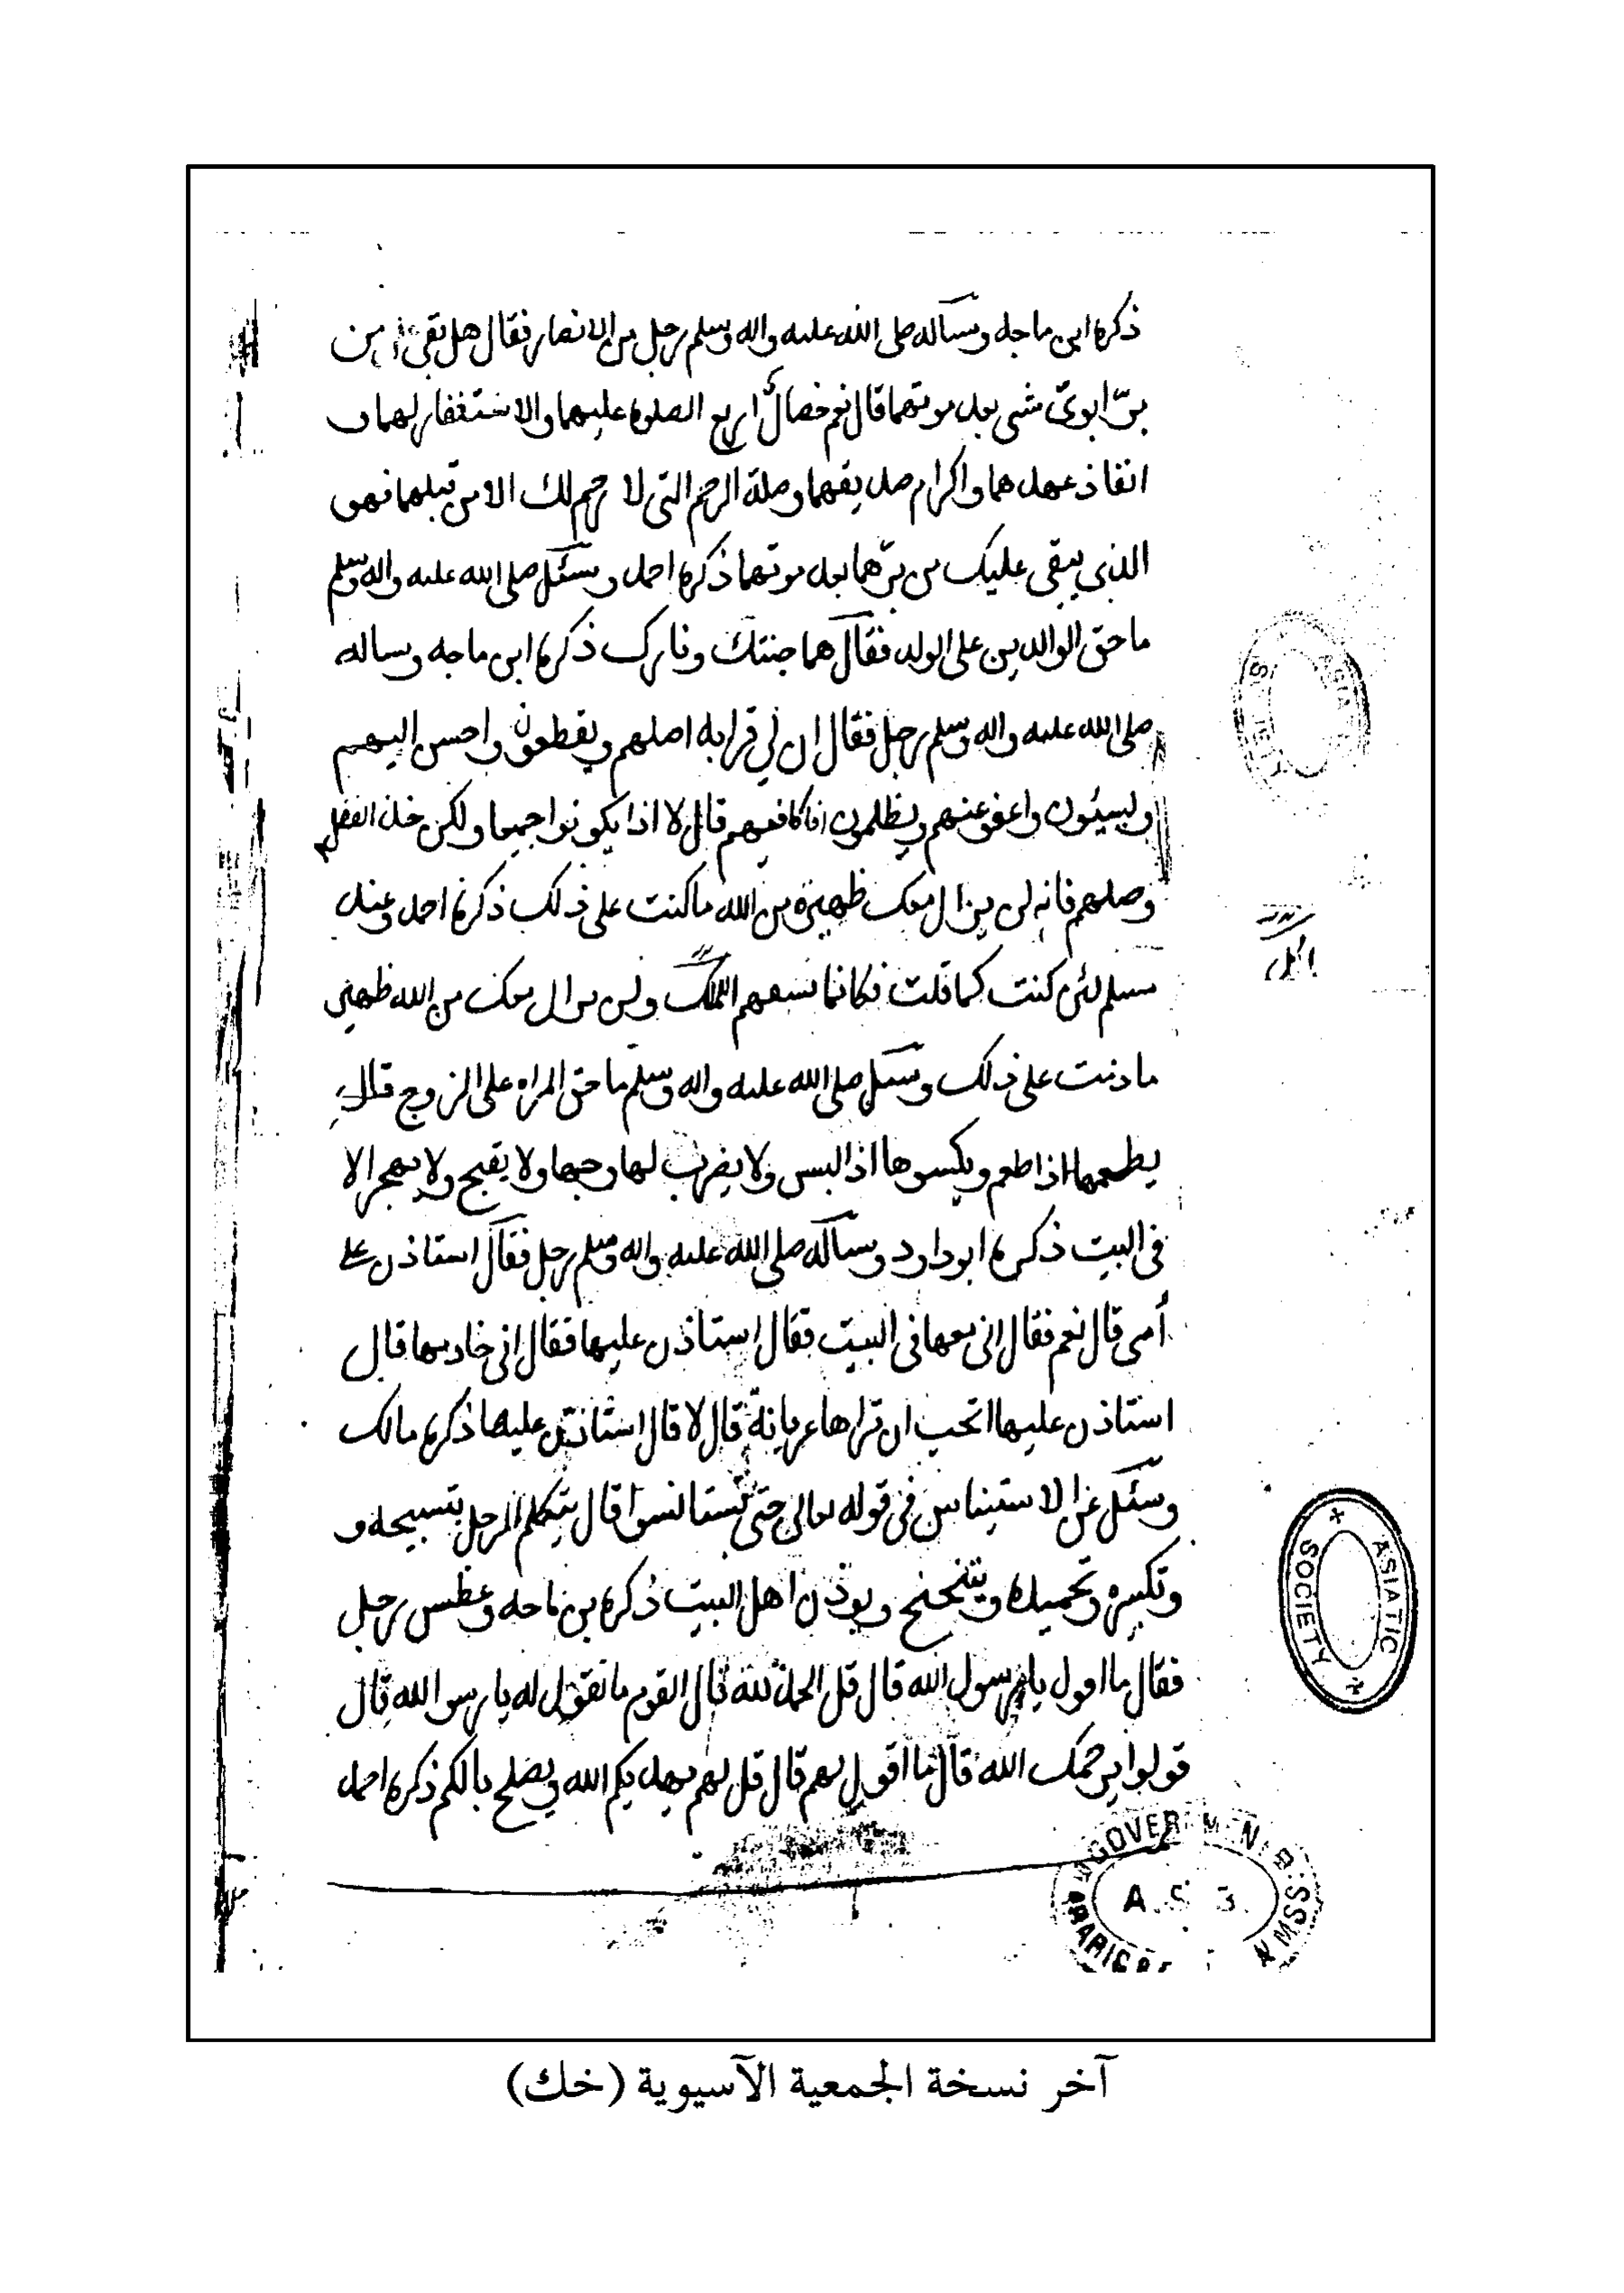 ذكره ابن ماجه وسأله صلى الله عليه واله وسلم رجل من الانصار فقال هل بقي من
برّ ابويّ شي بعد موتهما قال نعم خصال اربع الصلوة عليهما والاستغفار لهما و
انفاذ عهدهما واكرام صديقهما وصلة الرحم التي لا رحم لك الا من قبلهما فهو
الذي يبقى عليك من برّهما بعد موتهما ذكره احمد وسئل صلى الله عليه واله وسلم
ما حق الوالدين على الولد فقال هما جنتك ونارك ذكره ابن ماجه وساله
صلى الله عليه واله وسلم رجل فقال ان لي قرابه اصلهم ويقطعون واحسن اليهم
ويسيئون واعفو عنهم ويظلمون افاكافيهم قال لا اذا يكونوا جميعا ولكن خذ الفضل
وصلهم فانه لن يزال معك ظهيره من الله ما كنت على ذلك ذكره احمد وعند
مسلم لئن كنت كما قلت فكانما تسفهم الملك ولن يزال معك من الله ظهير
ما دمت على ذلك وسئل صلى الله عليه واله وسلم ما حق المراه على الزوج قال
يطعمها اذا طعم ويكسوها اذا البس ولا يضرب لها وجها ولا يقبح ولا يهجر الا
في البيت ذكره ابو داود وسأله صلى الله عليه واله وسلم رجل فقال استاذن على
أمي قال نعم فقال اني معها في البيت فقال استاذن عليها فقال اني خادمها قال
استاذن عليها اتحب ان تراها عريانة قال لا قال استاذن عليها ذكره مالك
وسئل عن الاستيناس في قوله تعالى حتى تستانسوا قال يتكلم الرجل بتسبيحه و
وتكبيره وتحميده ويتنحنح ويوذن اهل البيت ذكره بن ماجه وعطس رجل
فقال ما اقول يا رسول الله قال قل الحمد لله قال القوم ما نقول له يا رسول الله قال
قولوا يرحمك الله قال ما اقول لهم قال قل لهم يهديكم الله ويصلح بالكم ذكره احمد
ASIATIC SOCIETY
A.S.B.
آخر نسخة الجمعية الآسيوية (خك)